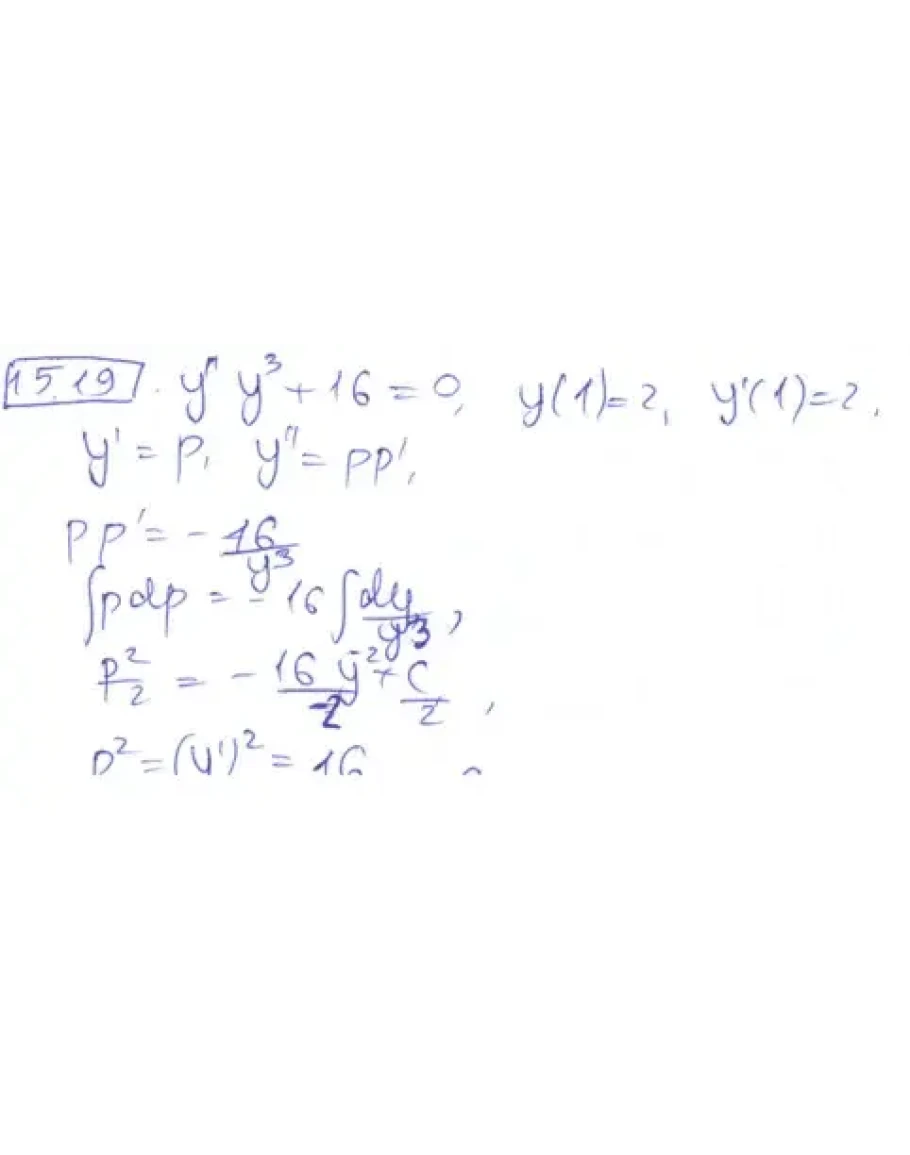 15.19. y'' y³ + 16 = 0, y(1)=2, y'(1)=2.
y' = p, y'' = pp',
pp' = - 16/y³
∫pdp = - 16 ∫dy/y³,
p²/2 = - 16 y⁻²/-2 + C/2,
p² = (y')² = 16